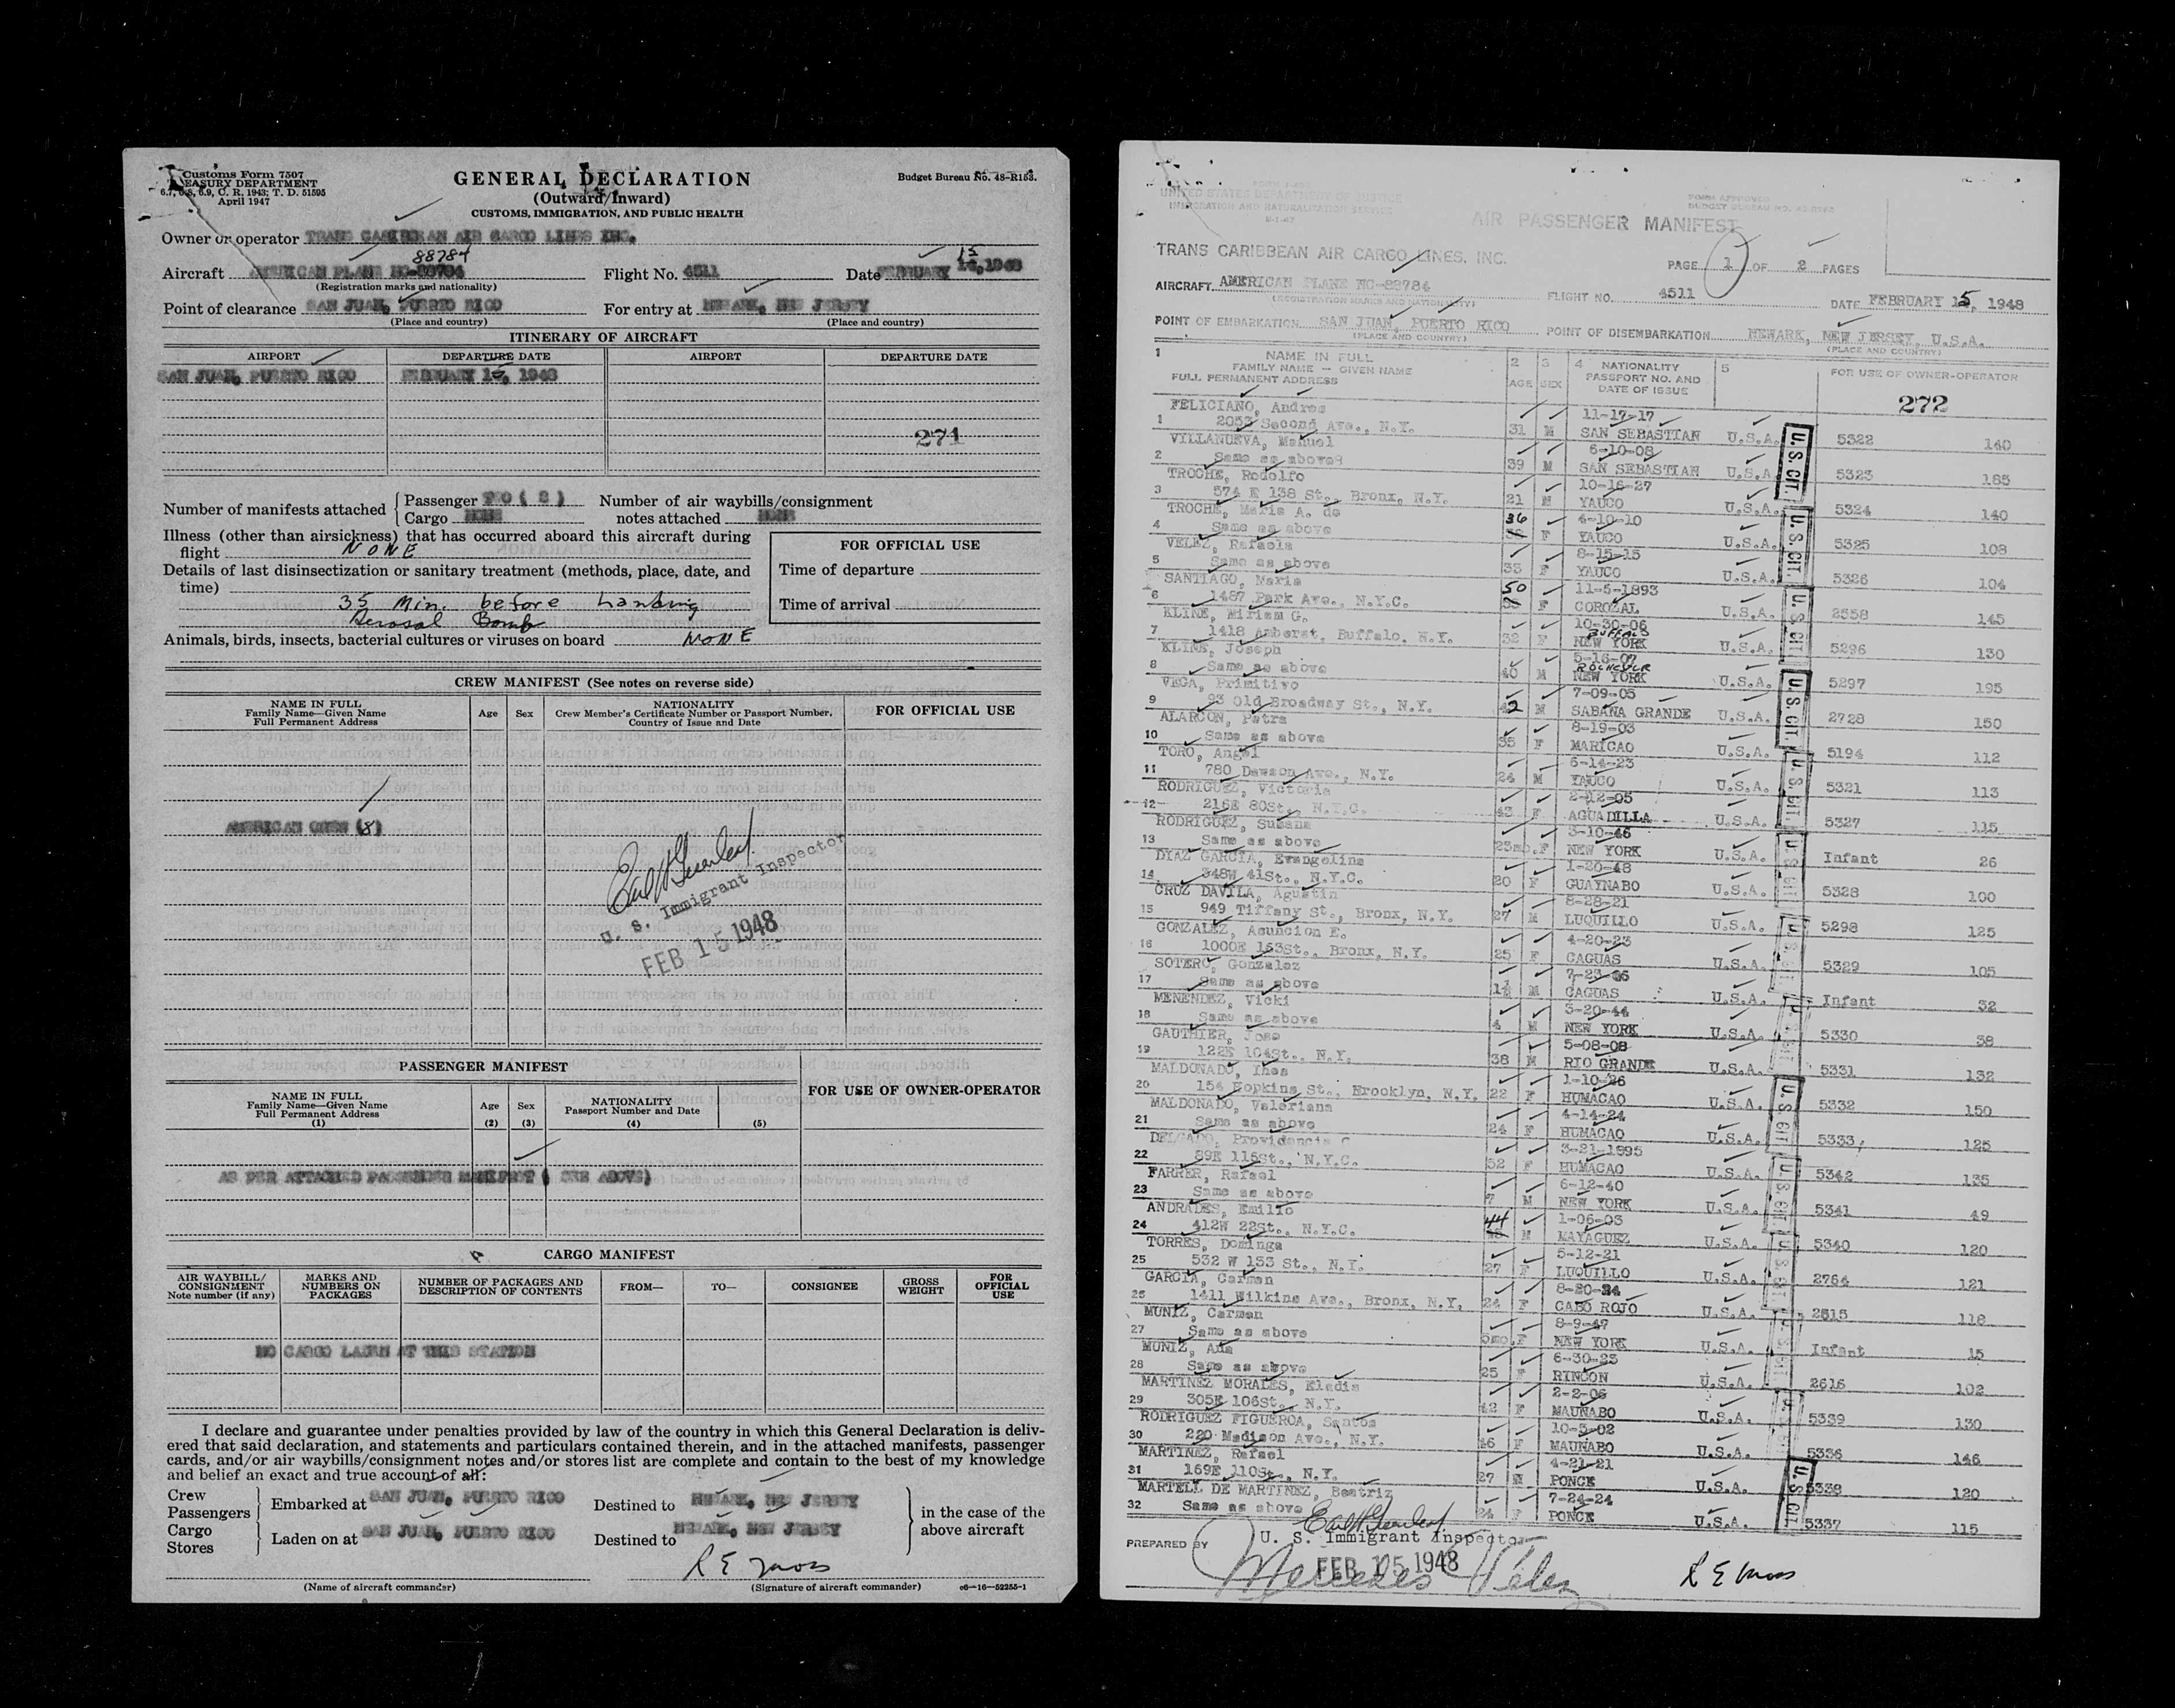 Customs Form 7507
TREASURY DEPARTMENT
6.7, 6.8, 6.9, C. R. 1943; T. D. 51595
April 1947
GENERAL DECLARATION
(Outward/Inward)
CUSTOMS, IMMIGRATION, AND PUBLIC HEALTH
Budget Bureau No. 48-R153.
Owner or operator TRANS CARIBBEAN AIR CARGO LINES INC.
88784
15
Aircraft AMERICAN PLANE NC-88784 Flight No. 4511 Date FEBRUARY 14, 1948
(Registration marks and nationality)
Point of clearance SAN JUAN, PUERTO RICO For entry at NEWARK, NEW JERSEY
(Place and country) (Place and country)
ITINERARY OF AIRCRAFT
AIRPORT DEPARTURE DATE AIRPORT DEPARTURE DATE
SAN JUAN, PUERTO RICO FEBRUARY 15, 1948
271
Number of manifests attached Passenger TWO ( 2 ) Number of air waybills/consignment
Cargo NONE notes attached NONE
Illness (other than airsickness) that has occurred aboard this aircraft during
flight NONE
Details of last disinsectization or sanitary treatment (methods, place, date, and
time)
35 Min. before Landing
Aerosol Bomb
Animals, birds, insects, bacterial cultures or viruses on board NONE
FOR OFFICIAL USE
Time of departure
Time of arrival
CREW MANIFEST (See notes on reverse side)
NAME IN FULL
Family Name—Given Name
Full Permanent Address
Age Sex
NATIONALITY
Crew Member's Certificate Number or Passport Number,
Country of Issue and Date
FOR OFFICIAL USE
AMERICAN CREW (8)
U. S. Immigrant Inspector
FEB 15 1948
PASSENGER MANIFEST
FOR USE OF OWNER-OPERATOR
NAME IN FULL
Family Name—Given Name
Full Permanent Address
(1)
Age
(2)
Sex
(3)
NATIONALITY
Passport Number and Date
(4) (5)
AS PER ATTACHED PASSENGER MANIFEST ( SEE ABOVE)
CARGO MANIFEST
AIR WAYBILL/
CONSIGNMENT
Note number (if any)
MARKS AND
NUMBERS ON
PACKAGES
NUMBER OF PACKAGES AND
DESCRIPTION OF CONTENTS
FROM— TO— CONSIGNEE
GROSS
WEIGHT
FOR
OFFICIAL
USE
NO CARGO LADEN AT THIS STATION
I declare and guarantee under penalties provided by law of the country in which this General Declaration is deliv-
ered that said declaration, and statements and particulars contained therein, and in the attached manifests, passenger
cards, and/or air waybills/consignment notes and/or stores list are complete and contain to the best of my knowledge
and belief an exact and true account of all:
Crew
Passengers
Embarked at SAN JUAN, PUERTO RICO Destined to NEWARK, NEW JERSEY
Cargo
Stores
Laden on at SAN JUAN, PUERTO RICO Destined to NEWARK, NEW JERSEY
in the case of the
above aircraft
R E Moss
(Name of aircraft commander) (Signature of aircraft commander) c6—16—52255-1
UNITED STATES DEPARTMENT OF JUSTICE
IMMIGRATION AND NATURALIZATION SERVICE
FORM APPROVED
AIR PASSENGER MANIFEST
TRANS CARIBBEAN AIR CARGO LINES, INC.
PAGE 1 OF 2 PAGES
AIRCRAFT AMERICAN PLANE NC-88784 FLIGHT NO. 4511 DATE FEBRUARY 15, 1948
(REGISTRATION MARKS AND NATIONALITY)
POINT OF EMBARKATION SAN JUAN, PUERTO RICO POINT OF DISEMBARKATION NEWARK, NEW JERSEY, U.S.A.
(PLACE AND COUNTRY) (PLACE AND COUNTRY)
1 NAME IN FULL
FAMILY NAME — GIVEN NAME
FULL PERMANENT ADDRESS
2 AGE
3 SEX
4 NATIONALITY
PASSPORT NO. AND
DATE OF ISSUE
5
FOR USE OF OWNER-OPERATOR
272
FELICIANO, Andres 11-17-17
1 2052 Second Ave., N.Y. 31 M SAN SEBASTIAN U.S.A. 5322 140
VILLANUEVA, Manuel 6-10-08
2 Same as above8 39 M SAN SEBASTIAN U.S.A. 5323 185
TROCHE, Rodolfo 10-16-27
3 574 E 138 St., Bronx, N.Y. 21 M YAUCO U.S.A. 5324 140
TROCHE, Maria A. de 36 4-10-10
4 Same as above F YAUCO U.S.A. 5325 108
VELEZ, Rafaela 8-15-15
5 Same as above 33 F YAUCO U.S.A. 5326 104
SANTIAGO, Maria 50 11-5-1893
6 1487 Park Ave., N.Y.C. F COROZAL U.S.A. 2558 145
KLINE, Miriam G. 10-30-06
BUFFALO
7 1418 Amherst, Buffalo, N.Y. 32 F NEW YORK U.S.A. 5296 130
KLINE, Joseph 5-16-07
ROCHESTER
8 Same as above 40 M NEW YORK U.S.A. 5297 195
VEGA, Primitivo 7-09-05
9 93 Old Broadway St., N.Y. 42 M SABANA GRANDE U.S.A. 2728 150
ALARCON, Petra 8-19-03
10 Same as above 35 F MARICAO U.S.A. 5194 112
TORO, Angel 6-14-23
11 780 Dawson Ave., N.Y. 24 M YAUCO U.S.A. 5321 113
RODRIGUEZ, Victoria 2-12-05
12 216E 80St., N.Y.C. 43 F AGUADILLA U.S.A. 5327 115
RODRIGUEZ, Susana 3-10-46
13 Same as above 23mo. F NEW YORK U.S.A. Infant 26
DIAZ GARCIA, Evangelina 1-20-48
14 348W 41St., N.Y.C. 20 F GUAYNABO U.S.A. 5328 100
CRUZ DAVILA, Agustin 8-28-21
15 949 Tiffany St., Bronx, N.Y. 27 M LUQUILLO U.S.A. 5298 125
GONZALEZ, Asuncion E. 4-20-23
16 1000E 163St., Bronx, N.Y. 25 F CAGUAS U.S.A. 5329 105
SOTERO, Gonzalez 7-23-46
17 Same as above 1½ M CAGUAS U.S.A. Infant 32
MENENDEZ, Vicki 3-20-44
18 Same as above 4 M NEW YORK U.S.A. 5330 38
GAUTHIER, Jose 5-08-08
19 122E 104St., N.Y. 38 M RIO GRANDE U.S.A. 5331 132
MALDONADO, Ines 1-10-26
20 154 Hopkins St., Brooklyn, N.Y. 22 F HUMACAO U.S.A. 5332 150
MALDONADO, Valeriana 4-14-24
21 Same as above 24 F HUMACAO U.S.A. 5333 125
DELGADO, Providencia C 3-21-1895
22 89E 116St., N.Y.C. 52 F HUMACAO U.S.A. 5342 135
FARRER, Rafael 6-12-40
23 Same as above 7 M NEW YORK U.S.A. 5341 49
ANDRADES, Emilio 44 1-06-03
24 412W 22St., N.Y.C. M MAYAGUEZ U.S.A. 5340 120
TORRES, Dominga 5-12-21
25 532 W 153 St., N.Y. 27 F LUQUILLO U.S.A. 2764 121
GARCIA, Carmen 8-20-24
26 1411 Wilkins Ave., Bronx, N.Y. 24 F CABO ROJO U.S.A. 2615 118
MUNIZ, Carmen 8-9-47
27 Same as above 6mo. F NEW YORK U.S.A. Infant 15
MUNIZ, Ana 6-30-23
28 Same as above 25 F RINCON U.S.A. 2616 102
MARTINEZ MORALES, Eladia 2-2-06
29 305E 106St., N.Y. 42 F MAUNABO U.S.A. 5339 130
RODRIGUEZ FIGUEROA, Santos 10-5-02
30 220 Madison Ave., N.Y. 46 F MAUNABO U.S.A. 5336 146
MARTINEZ, Rafael 4-21-21
31 169E 110St., N.Y. 27 M PONCE U.S.A. 5338 120
MARTELL DE MARTINEZ, Beatriz 7-24-24
32 Same as above 24 F PONCE U.S.A. 5337 115
U.S. CIT.
U.S. CIT.
U.S. CIT.
U.S. CIT.
U.S. CIT.
U.S. CIT.
U.S. CIT.
U.S. CIT.
PREPARED BY U. S. Immigrant Inspector
FEB 15 1948
Mercedes Vélez R E Moss